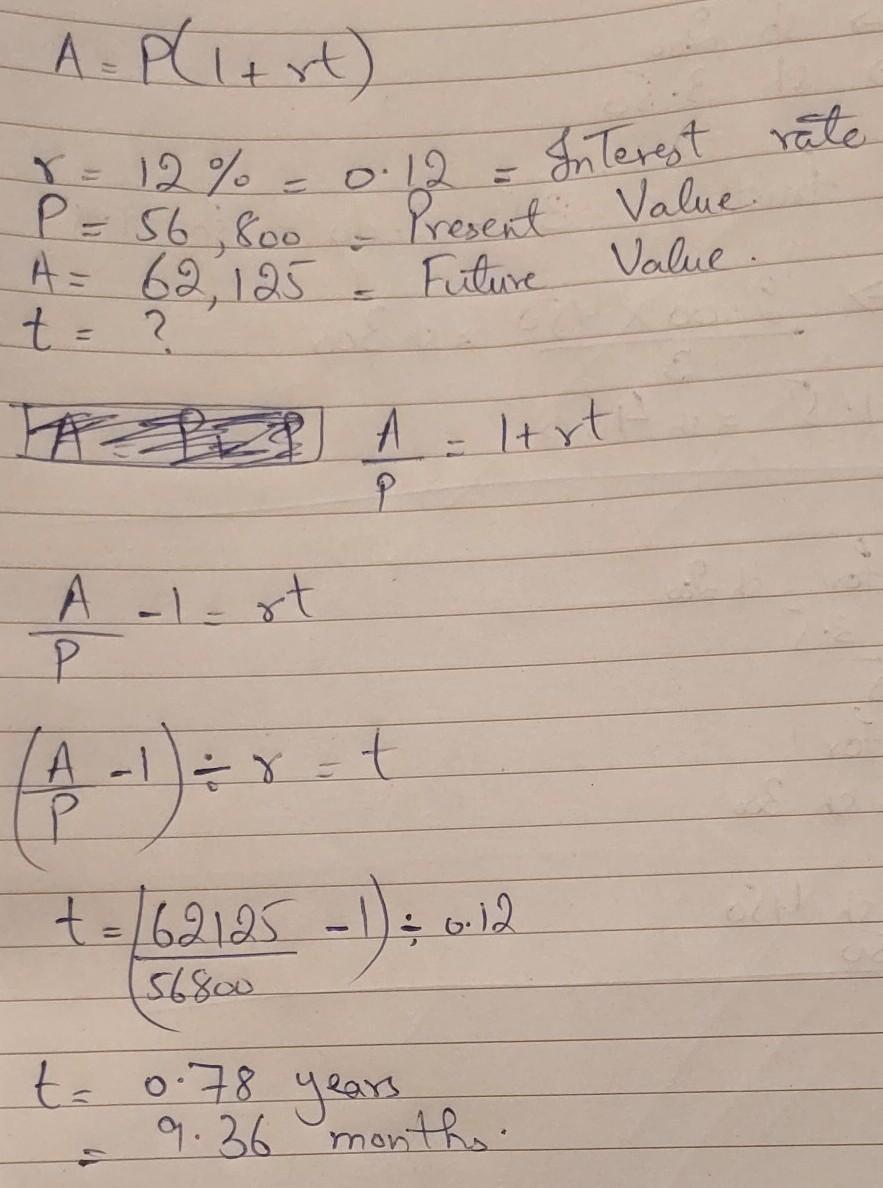 A = P(1 + rt)
r = 12 % = 0.12 = Interest rate
P = 56,800 = Present Value.
A = 62,125 = Future Value.
t = ?
A/P = 1 + rt
A/P - 1 = rt
(A/P - 1) ÷ r = t
t = (62125/56800 - 1) ÷ 0.12
t = 0.78 years
= 9.36 months.